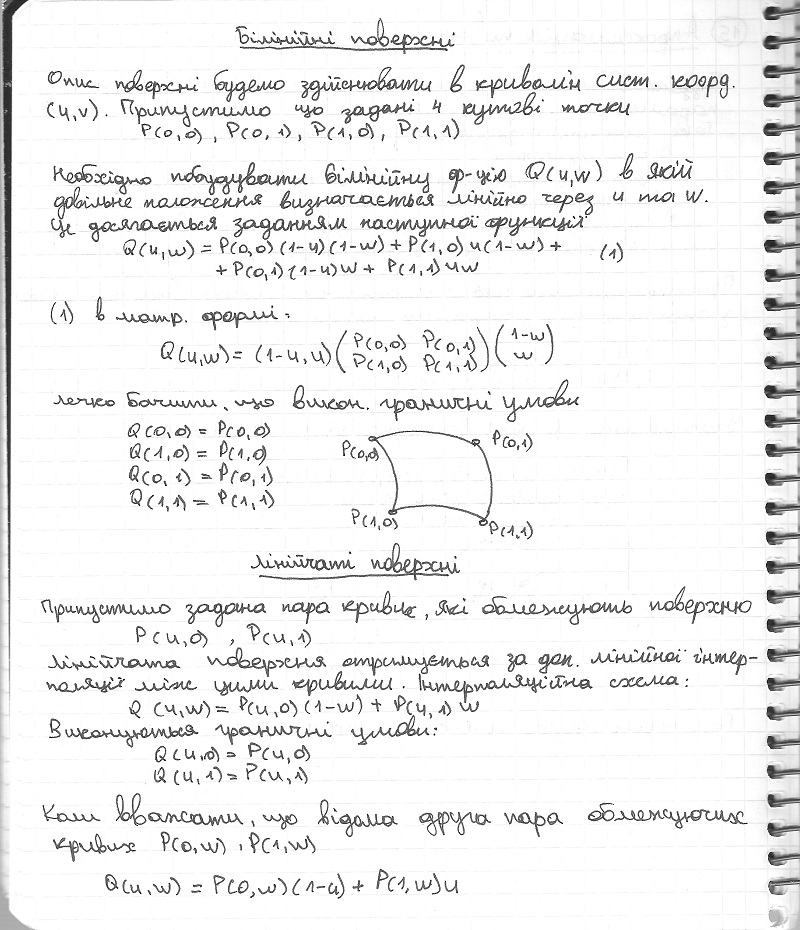 Білінійні поверхні
Опис поверхні будемо здійснювати в криволін сист. коорд.
(u,v). Припустимо що задані 4 кутові точки
P(0,0), P(0,1), P(1,0), P(1,1)
Необхідно побудувати білінійну ф-цію Q(u,w) в якій
довільне положення визначається лінійно через u та w.
Це досягається заданням наступної функції
Q(u,w) = P(0,0)(1-u)(1-w) + P(1,0)u(1-w) + (1)
+ P(0,1)(1-u)w + P(1,1)uw
(1) в матр. формі:
Q(u,w) = (1-u, u) (P(0,0) P(0,1)) (1-w)
(P(1,0) P(1,1)) (w)
легко бачити, що викон. граничні умови
Q(0,0) = P(0,0)
Q(1,0) = P(1,0)
Q(0,1) = P(0,1)
Q(1,1) = P(1,1)
P(0,0) P(0,1)
P(1,0) P(1,1)
лінійчаті поверхні
Припустимо задана пара кривих, які обмежують поверхню
P(u,0), P(u,1)
лінійчата поверхня отримується за доп. лінійної інтер-
поляції між цими кривими. Інтерполяційна схема:
Q(u,w) = P(u,0)(1-w) + P(u,1)w
Виконуються граничні умови:
Q(u,0) = P(u,0)
Q(u,1) = P(u,1)
Коли вважати, що відома друга пара обмежуючих
кривих P(0,w), P(1,w)
Q(u,w) = P(0,w)(1-u) + P(1,w)u